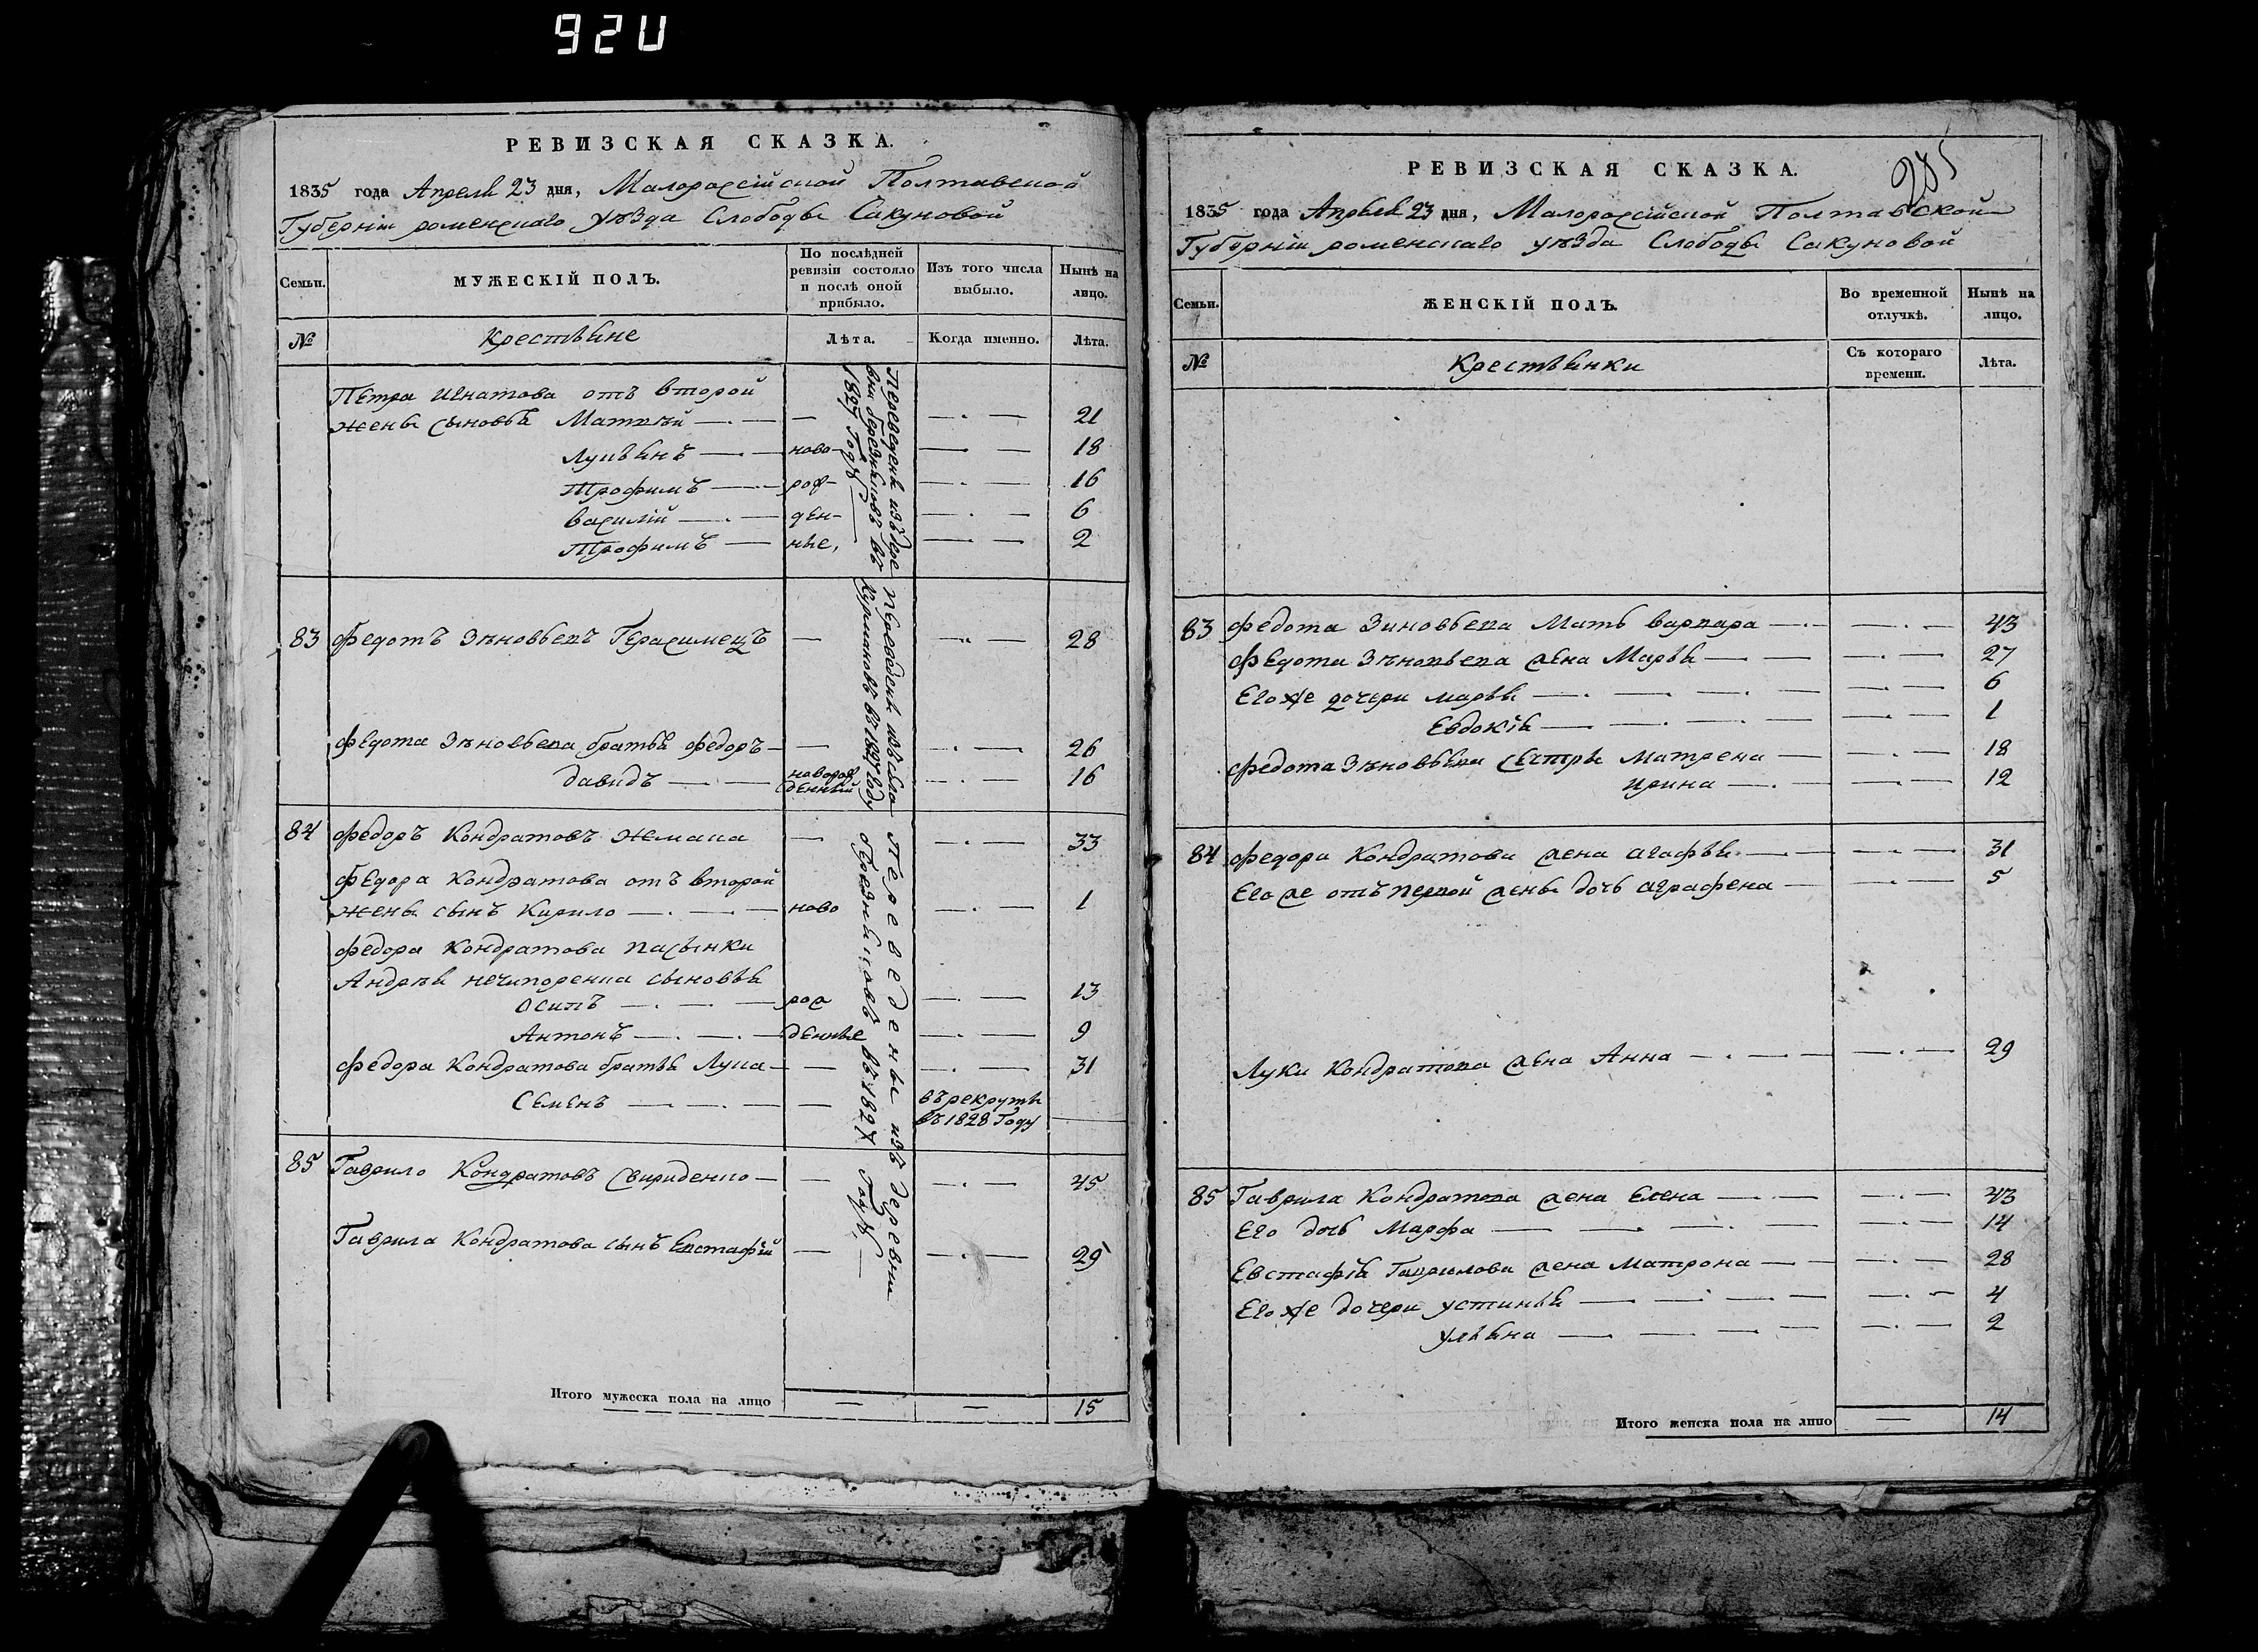 92U
РЕВИЗСКАЯ СКАЗКА.
1835 года Апреля 23 дня, Малоросійской Полтавской
Губерніи роменскаго уѣзда Слободы Сакуновой
Семьи.
МУЖЕСКІЙ ПОЛЪ.
По послѣдней ревизіи состояло и послѣ оной прибыло.
Изъ того числа выбыло.
Нынѣ на лицо.
№
Крестьяне
Лѣта.
Когда именно.
Лѣта.
Петра Игнатова отъ второй
жены сыновья Матвѣй — — 21
Лукьянъ — ново- — 18
Трофимъ — рож- — 16
василій — ден- — 6
Трофимъ — ные, — 2
Переведены изъ дере
вни березняковъ въ
1827 Году
83 Федотъ Зѣновьевъ Герасимецъ — — 28
Федота Зѣновьева братья Федоръ — — 26
давидъ — новорож денный — 16
переведены изъ села
въ 1827 году
84 Федоръ Кондратовъ Жемана — — 33
Федора Кондратова отъ второй
жены сынъ Кирило — ново — 1
Федора Кондратова пасынки
Андрѣя нечипоренка сыновья
Осипъ — рож — 13
Антонъ — денные — 9
Федора Кондратова братья Лука — — 31
Семенъ — — въ рекруты въ 1828 Году —
85 Гаврило Кондратовъ Свириденко — — 45
Гаврила Кондратова сынъ Евстафій — — 29
Переведены изъ деревни
березняковъ въ 1827 Году
Итого мужеска пола на лицо — — 15
РЕВИЗСКАЯ СКАЗКА.
1835 года Апреля 23 дня, Малоросійской Полтавской
Губерніи роменскаго уѣзда Слободы Сакуновой
Семьи.
ЖЕНСКІЙ ПОЛЪ.
Во временной отлучкѣ.
Нынѣ на лицо.
№
Крестьянки
Съ котораго времени.
Лѣта.
83 Федота Зиновьева Мать варвара — — 43
Федота Зѣновьева жена Марья — — 27
Его же дочери марья — — 6
Евдокія — — 1
Федота Зѣновьева сестры Матрена — — 18
ирина — — 12
84 Федора Кондратова жена агафья — — 31
Его же отъ первой жены дочь аграфена — — 5
Луки Кондратова жена Анна — — 29
85 Гаврила Кондратова жена Елена — — 43
Его дочь Марфа — — 14
Евстафія Гаврилова жена Матрона — — 28
Его же дочери устинья — — 4
ульяна — — 2
Итого женска пола на лицо — 14